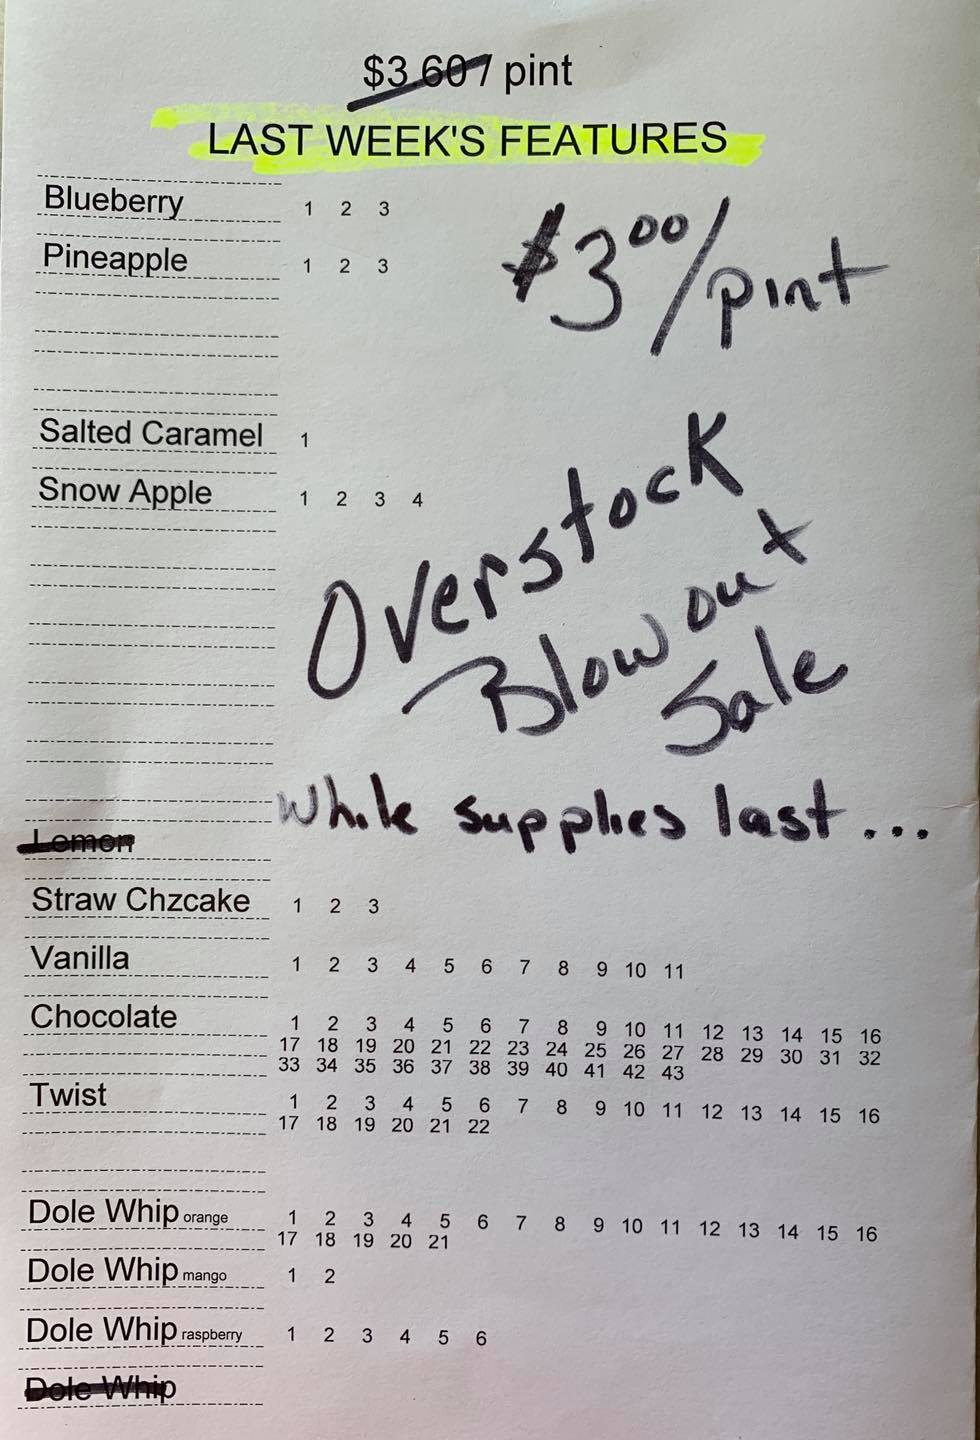 $3.60 / pint
LAST WEEK'S FEATURES
Blueberry 1 2 3
Pineapple 1 2 3
$3.00/pint
Salted Caramel 1
Snow Apple 1 2 3 4
Overstock
Blow out
Sale
While supplies last...
Lemon
Straw Chzcake 1 2 3
Vanilla 1 2 3 4 5 6 7 8 9 10 11
Chocolate 1 2 3 4 5 6 7 8 9 10 11 12 13 14 15 16
17 18 19 20 21 22 23 24 25 26 27 28 29 30 31 32
33 34 35 36 37 38 39 40 41 42 43
Twist 1 2 3 4 5 6 7 8 9 10 11 12 13 14 15 16
17 18 19 20 21 22
Dole Whip orange 1 2 3 4 5 6 7 8 9 10 11 12 13 14 15 16
17 18 19 20 21
Dole Whip mango 1 2
Dole Whip raspberry 1 2 3 4 5 6
Dole Whip